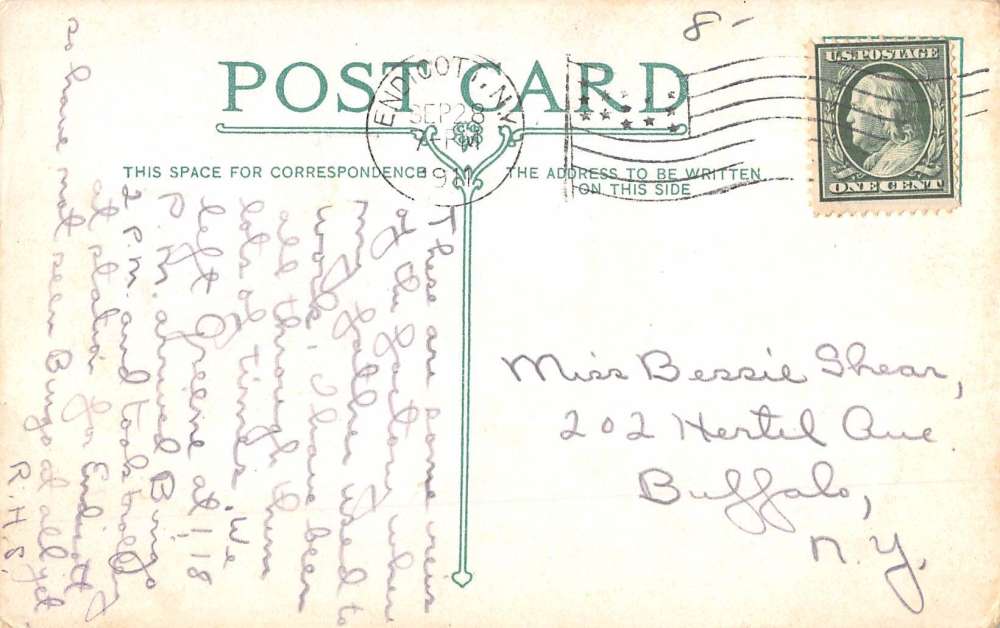 8-
POST CARD
ENDICOTT, N.Y.
SEP 28
7-PM
U.S. POSTAGE
ONE CENT
THIS SPACE FOR CORRESPONDENCE
THE ADDRESS TO BE WRITTEN
ON THIS SIDE
These are some views
of the factory where
my father used to
work. I have been
all through them
lots of times. We
left Greene at 1,18
P.M. arrived Bingo
2 P.M. and took trolly
at station for Endicott
so have not seen Bingo at all yet
R.H.S.
Miss Bessie Shear,
202 Hertel Ave
Buffalo,
N.Y.